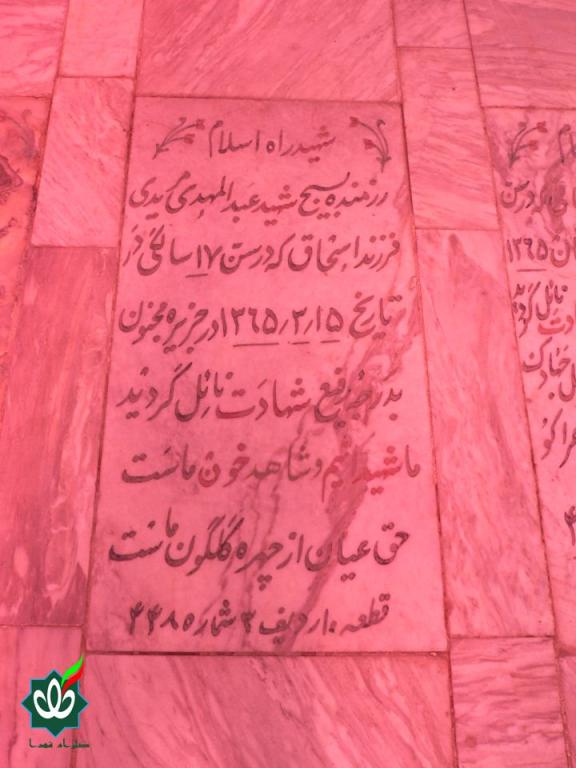 شهید راه اسلام
رزمنده بسیج شهید عبدالمهدی مریدی
فرزند اسحاق که در سن ۱۷ سالگی در
تاریخ ۱۳۶۵/۲/۱۵ در جزیره مجنون
بدرجه رفیع شهادت نائل گردید
ما شهیدانیم و شاهد خون ماست
حق عیان از چهره گلگون ماست
قطعه ۱۰ ردیف ۳ شماره ۴۴۸۵
۱۳۶۵